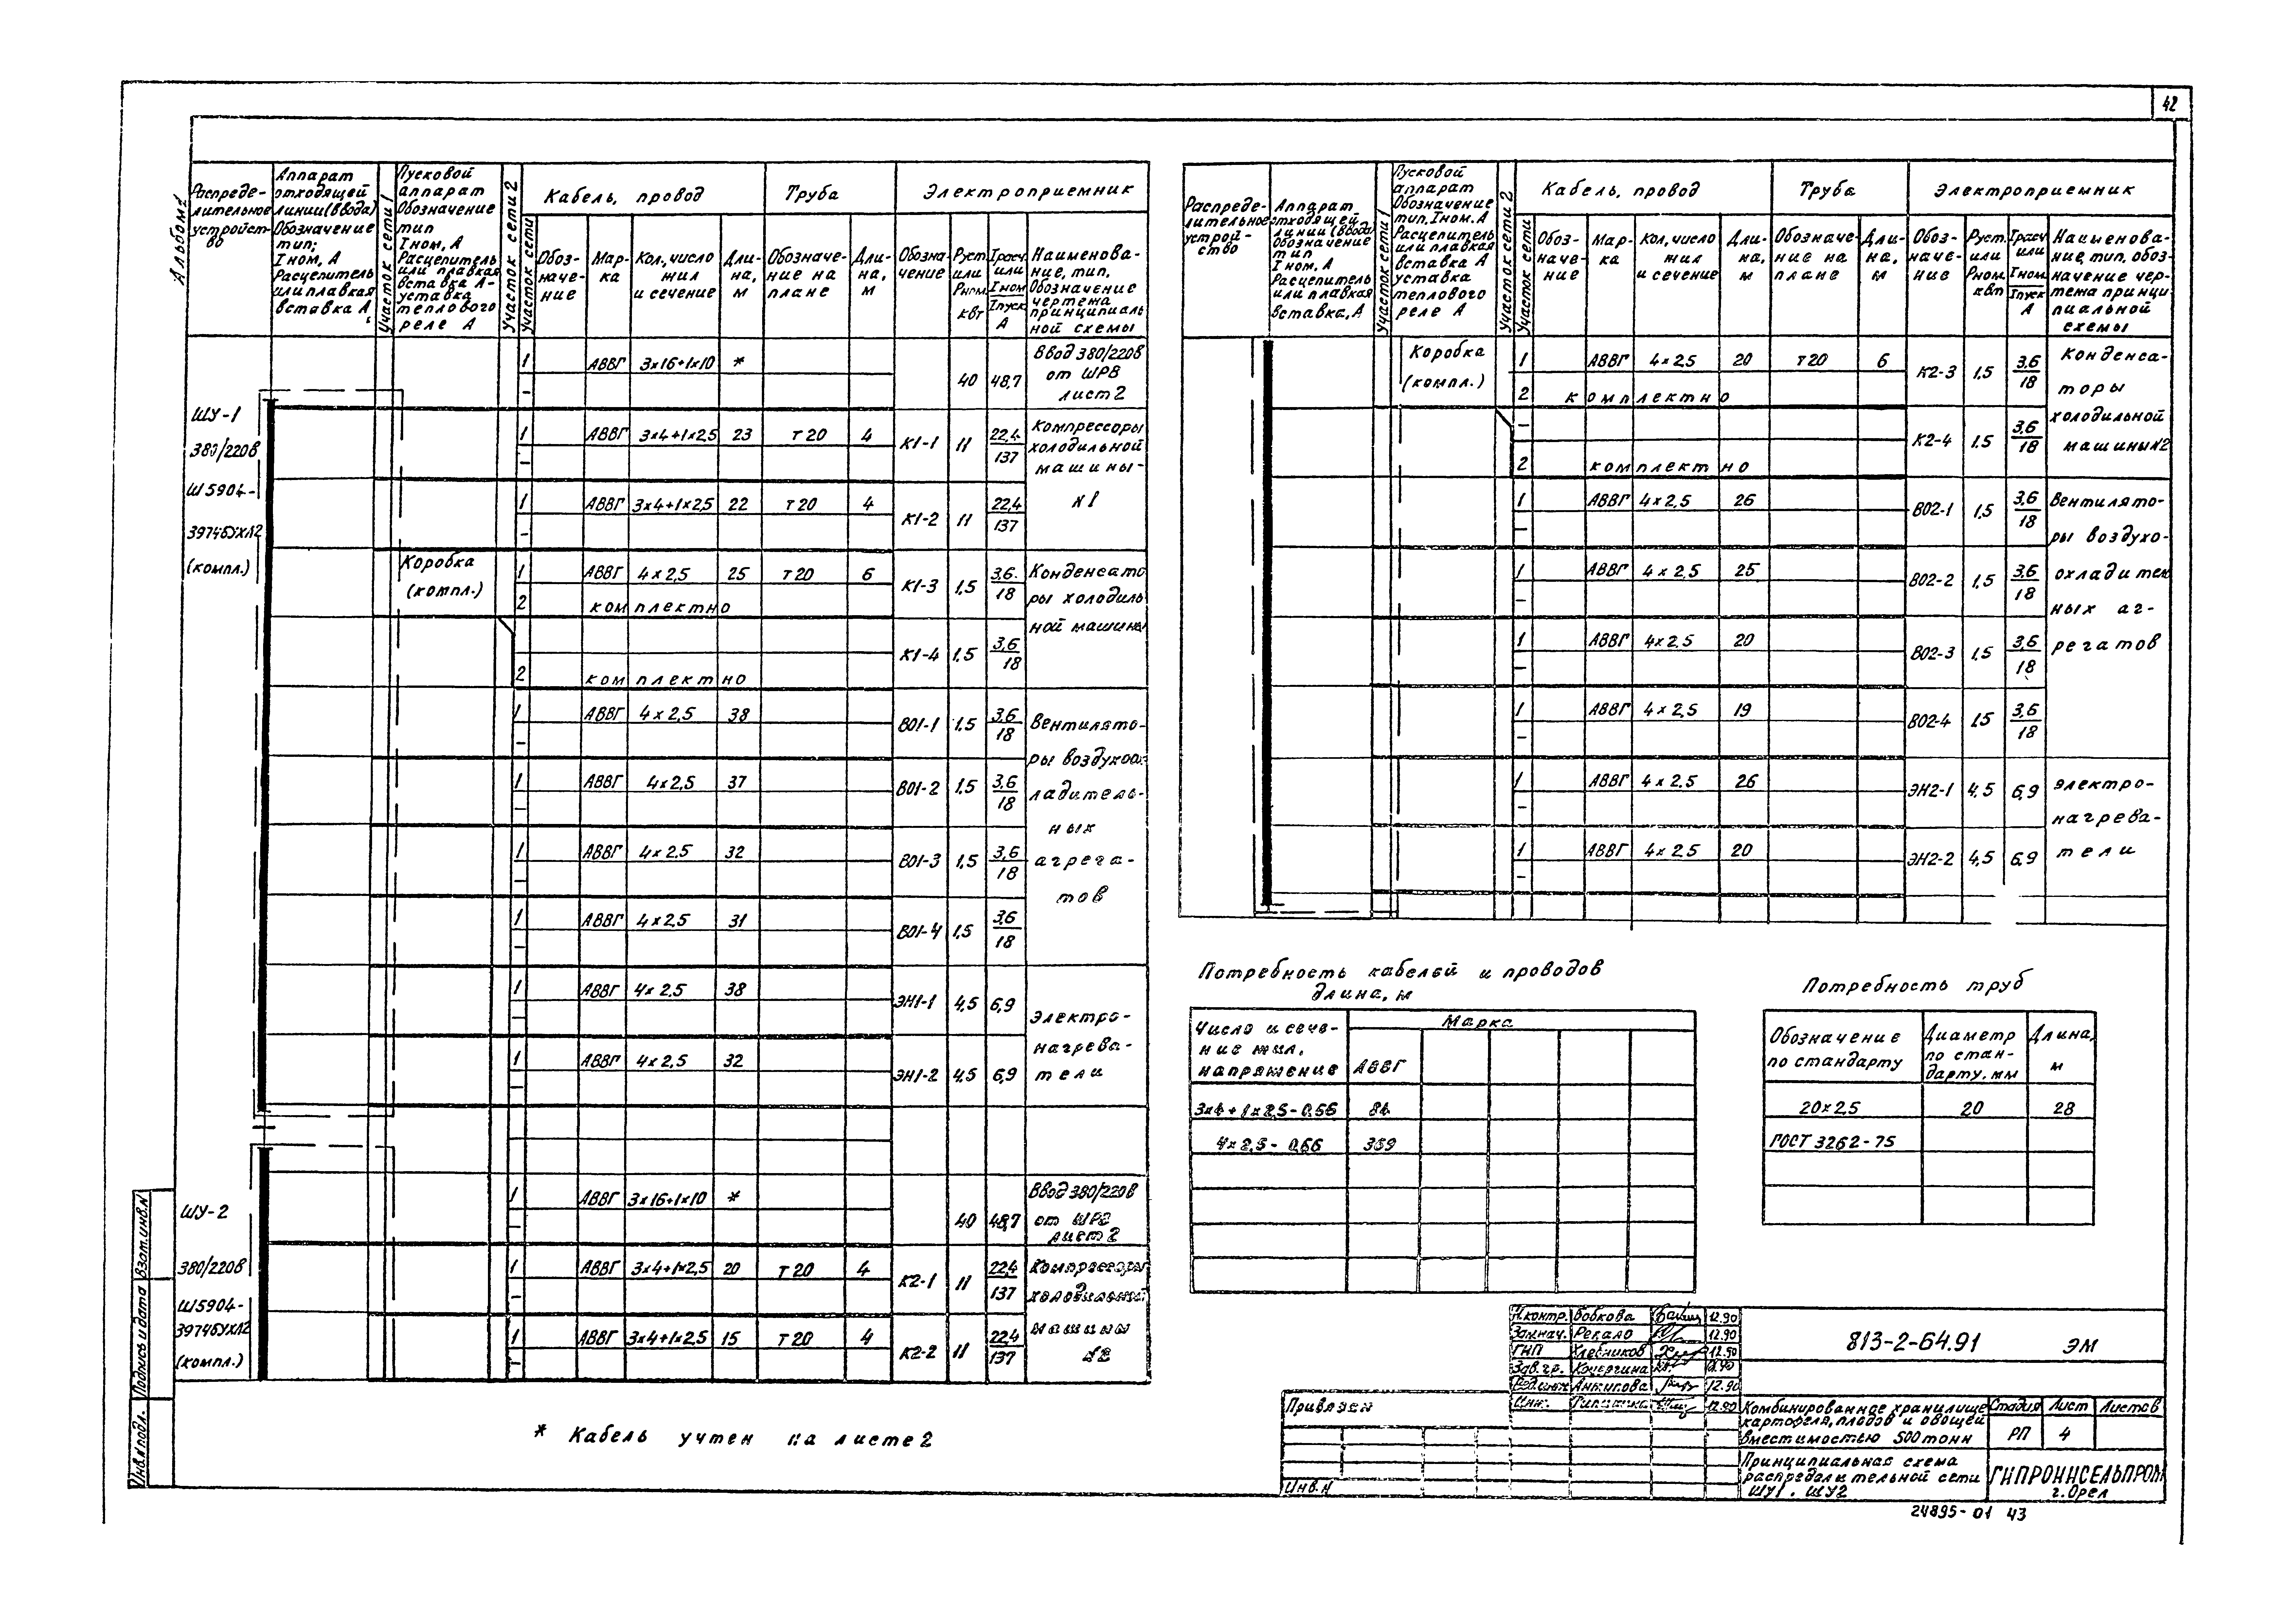 42
Альбом 1
Распреде-
лительное
устройст-
во
Аппарат
отходящей
линии (ввода)
Обозначение
тип;
I ном, А
Расцепитель
или плавкая
вставка А
Участок сети 1
Пусковой
аппарат
Обозначение
тип
I ном, А
Расцепитель
или плавкая
вставка А-
уставка
теплового
реле А
Участок сети 2
Участок сети
Кабель, провод
Труба
Электроприемник
Обоз-
наче-
ние
Мар-
ка
Кол., число
жил
и сечение
Дли-
на,
м
Обозначе-
ние на
плане
Дли-
на,
м
Обозна-
чение
Руст.
или
Рном
квт
Iрасч
или
Iном
Iпуск
А
Наименова-
ние, тип,
Обозначение
чертежа
принципиаль
ной схемы
1 АВВГ 3х16+1х10 * 40 48,7
-
Ввод 380/220в
от ШР8
лист 2
ШУ-1
380/220в
Ш5904-
3974бУХЛ2
(компл.)
1 АВВГ 3х4+1х2,5 23 т20 4 К1-1 11 22,4/137
-
Компрессоры
холодильной
машины-
N1
1 АВВГ 3х4+1х2,5 22 т20 4 К1-2 11 22,4/137
-
Коробка
(компл.)
1 АВВГ 4х2,5 25 т20 6 К1-3 1,5 3,6/18
2 комплектно
Конденсато
ры холодиль
ной машины
К1-4 1,5 3,6/18
2 комплектно
1 АВВГ 4х2,5 38 ВО1-1 1,5 3,6/18
-
Вентилято-
ры воздухоох
ладитель-
ных
агрега-
тов
1 АВВГ 4х2,5 37 ВО1-2 1,5 3,6/18
-
1 АВВГ 4х2,5 32 ВО1-3 1,5 3,6/18
-
1 АВВГ 4х2,5 31 ВО1-4 1,5 3,6/18
-
1 АВВГ 4х2,5 38 ЭН1-1 4,5 6,9
-
Электро-
нагрева-
тели
1 АВВГ 4х2,5 32 ЭН1-2 4,5 6,9
-
1 АВВГ 3х16+1х10 * 40 48,7
-
Ввод 380/220в
от ШР2
лист 2
ШУ-2
380/220в
Ш5904-
3974бУХЛ2
(компл.)
1 АВВГ 3х4+1х2,5 20 т20 4 К2-1 11 22,4/137
-
Компрессоры
холодильной
машины
N2
1 АВВГ 3х4+1х2,5 15 т20 4 К2-2 11 22,4/137
-
* Кабель учтен на листе 2
Распреде-
лительное
устрой-
ство
Аппарат
отходящей
линии (ввода)
Обозначение
тип
I ном, А
Расцепитель
или плавкая
вставка, А
Участок сети 1
Пусковой
аппарат
Обозначение
тип, Iном. А
Расцепитель
или плавкая
вставка А
уставка
теплового
реле А
Участок сети 2
Участок сети
Кабель, провод
Труба
Электроприемник
Обоз-
наче-
ние
Мар-
ка
Кол, число
жил
и сечение
Дли-
на,
м
Обозначе-
ние на
плане
Дли-
на,
м
Обоз-
наче-
ние
Руст.
или
Рном
квт
Iрасч
или
Iном
Iпуск
А
Наименова-
ние, тип, обоз-
начение чер-
тежа принци
пиальной
схемы
Коробка
(компл.)
1 АВВГ 4х2,5 20 т20 6 К2-3 1,5 3,6/18
2 комплектно
Конденса-
торы
холодильной
машины N2
-
К2-4 1,5 3,6/18
2 комплектно
1 АВВГ 4х2,5 26 ВО2-1 1,5 3,6/18
-
Вентилято-
ры воздухо-
охладител
ных аг-
регатов
1 АВВГ 4х2,5 25 ВО2-2 1,5 3,6/18
-
1 АВВГ 4х2,5 20 ВО2-3 1,5 3,6/18
-
1 АВВГ 4х2,5 19 ВО2-4 1,5 3,6/18
-
1 АВВГ 4х2,5 26 ЭН2-1 4,5 6,9
-
Электро-
нагрева-
тели
1 АВВГ 4х2,5 20 ЭН2-2 4,5 6,9
-
Потребность кабелей и проводов
длина, м
Число и сече-
ние жил,
напряжение
Марка
АВВГ
3х4+1х2,5-0,66
4х2,5-0,66
Потребность труб
Обозначение
по стандарту
Диаметр
по стан-
дарту, мм
Длина,
м
20х2,5 20 28
ГОСТ 3262-75
Н.контр. Бобкова 12.90
Зам.нач. Рекало 12.90
ГНП Хлебников 12.90
Зав.гр. Кочергина 12.90
12.90
Инж. 12.90
813-2-64.91 ЭМ
Привязан
Инв. N
Комбинированное хранилище
картофеля, плодов и овощей
вместимостью 500 тонн
Стадия Лист Листов
РП 4
Принципиальная схема
распределительной сети
ШУ1, ШУ2
ГИПРОНИСЕЛЬПРОМ
г. Орел
24895-01 43
Взам.инв.N
Подпись и дата
Инв.N подл.